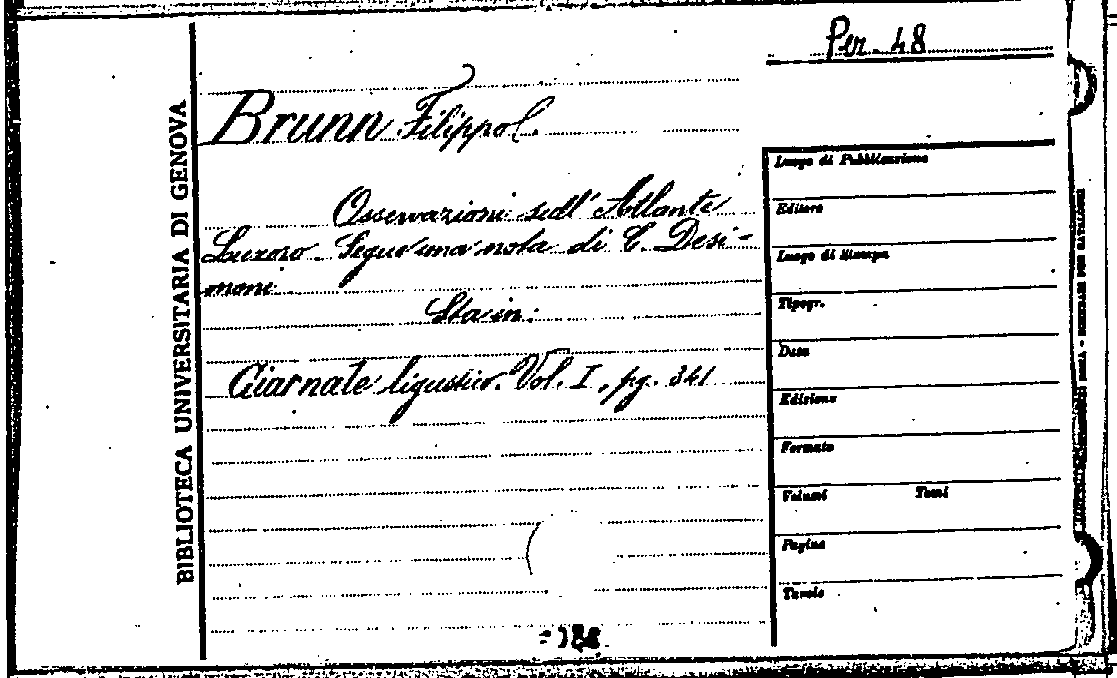 Per. 48
BIBLIOTECA UNIVERSITARIA DI GENOVA
Brunn Filippo
Osservazioni sull' Atlante
Luxoro. Segue una nota di C. Desi-
moni
Sta in:
Giornale ligustico. Vol. I, pg. 341
Luogo di Pubblicazione
Editore
Luogo di Stampa
Tipogr.
Data
Edizione
Formato
Volumi Tomi
Pagine
Tavole